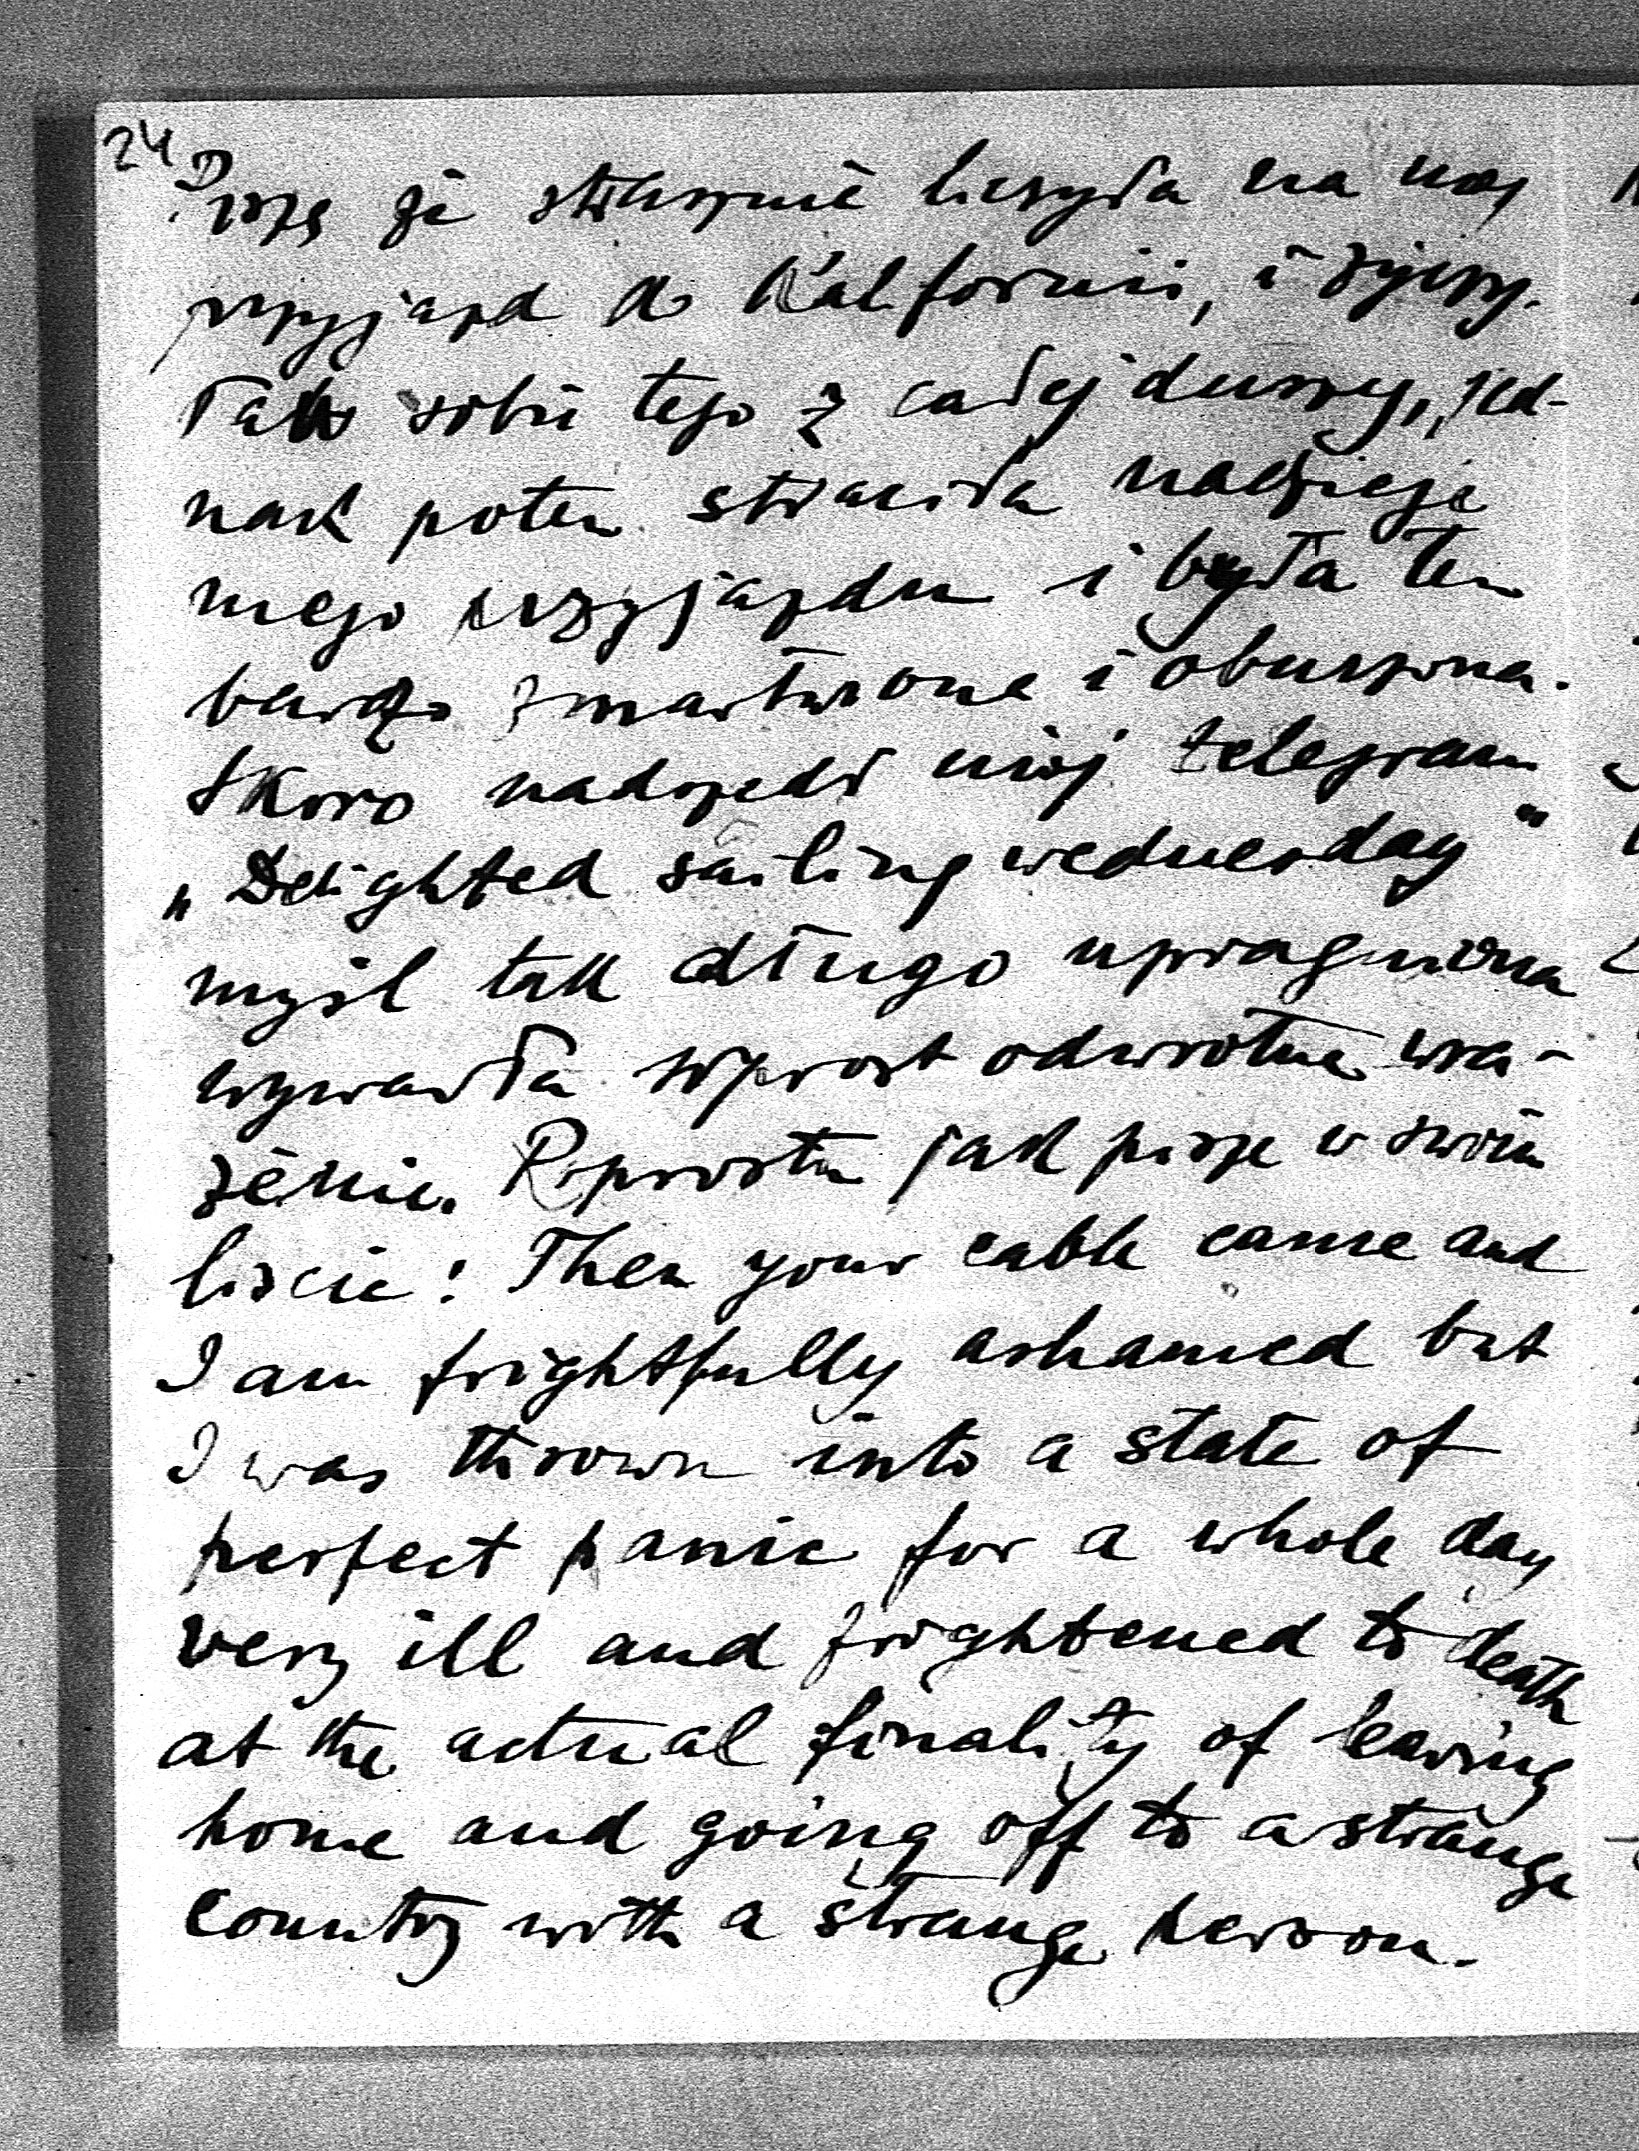 24
Pisze że strasznie liczyła na mój
przyjazd do Kalifornii, i życzy-
ła sobie tego z całej duszy, jed-
nak potem straciła nadzieję
mego przyjazdu i była tem
bardzo zmartwiona i oburzona.
Skoro nadszedł mój telegram
„Delighted sailing wednesday"
myśl tak długo upragniona
wywarła wprost odwrotne wra-
żenie. Poprostu jak pisze w swoim
liscie: Then your cable came and
I am frightfully ashamed but
I was thrown into a state of
perfect panic for a whole day
very ill and frightened to death
at the actual finality of leaving
home and going off to a strange
country with a strange person.